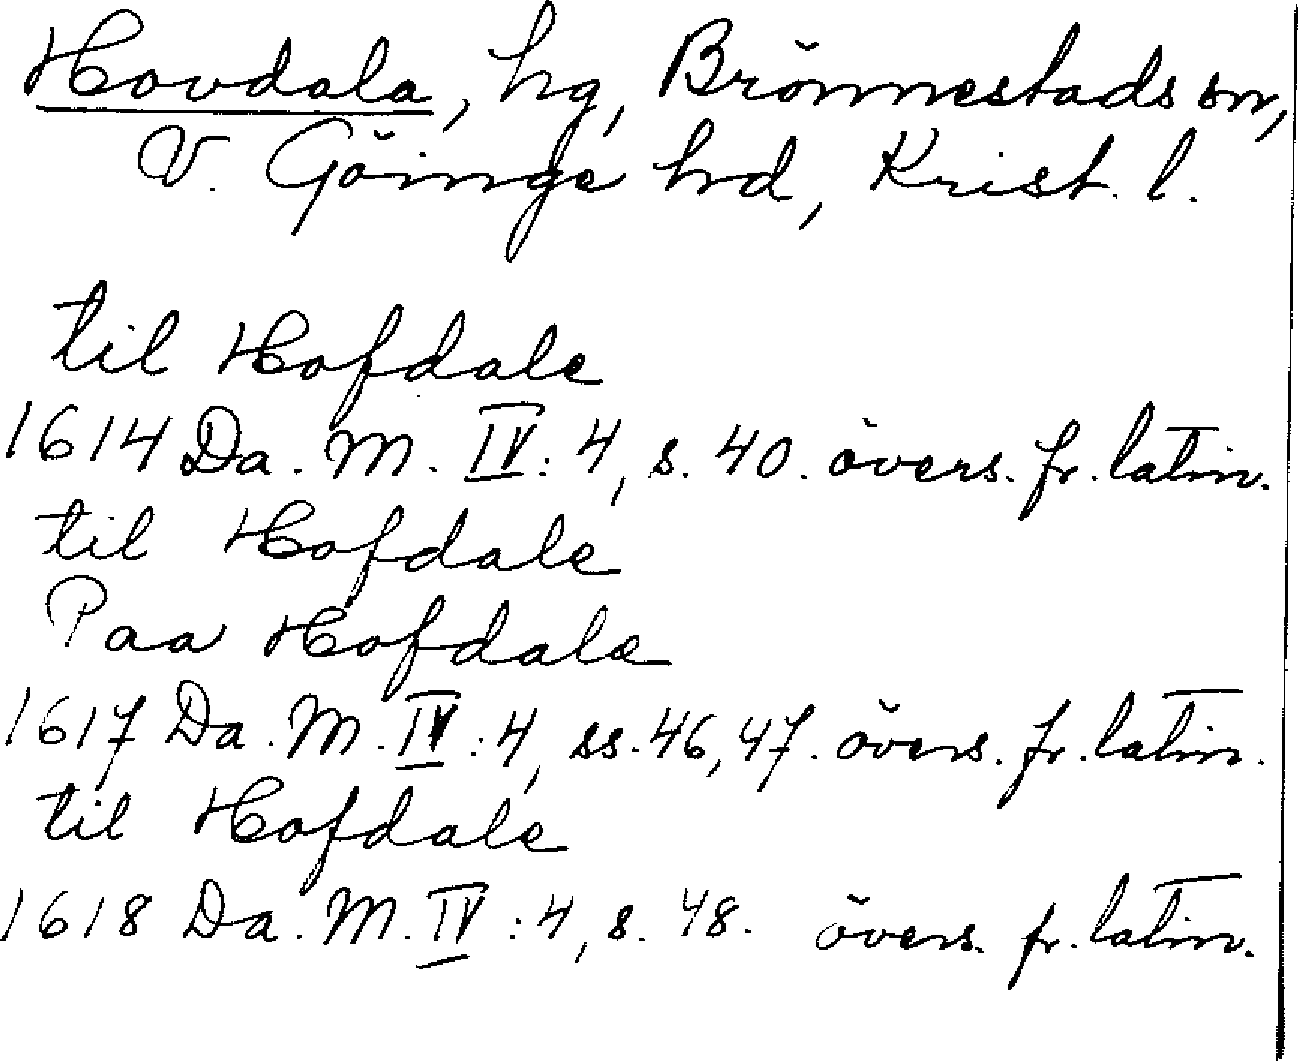 Hovdala, hg, Brönnestads sn,
V. Göinge hd, Krist. l.
til Hofdale
1614 Da. M. IV: 4, s. 40. övers. fr. latin.
til Hofdale
Paa Hofdale
1617 Da. M. IV: 4, ss. 46, 47. övers. fr. latin.
til Hofdale
1618 Da. M. IV: 4, s. 48. övers. fr. latin.